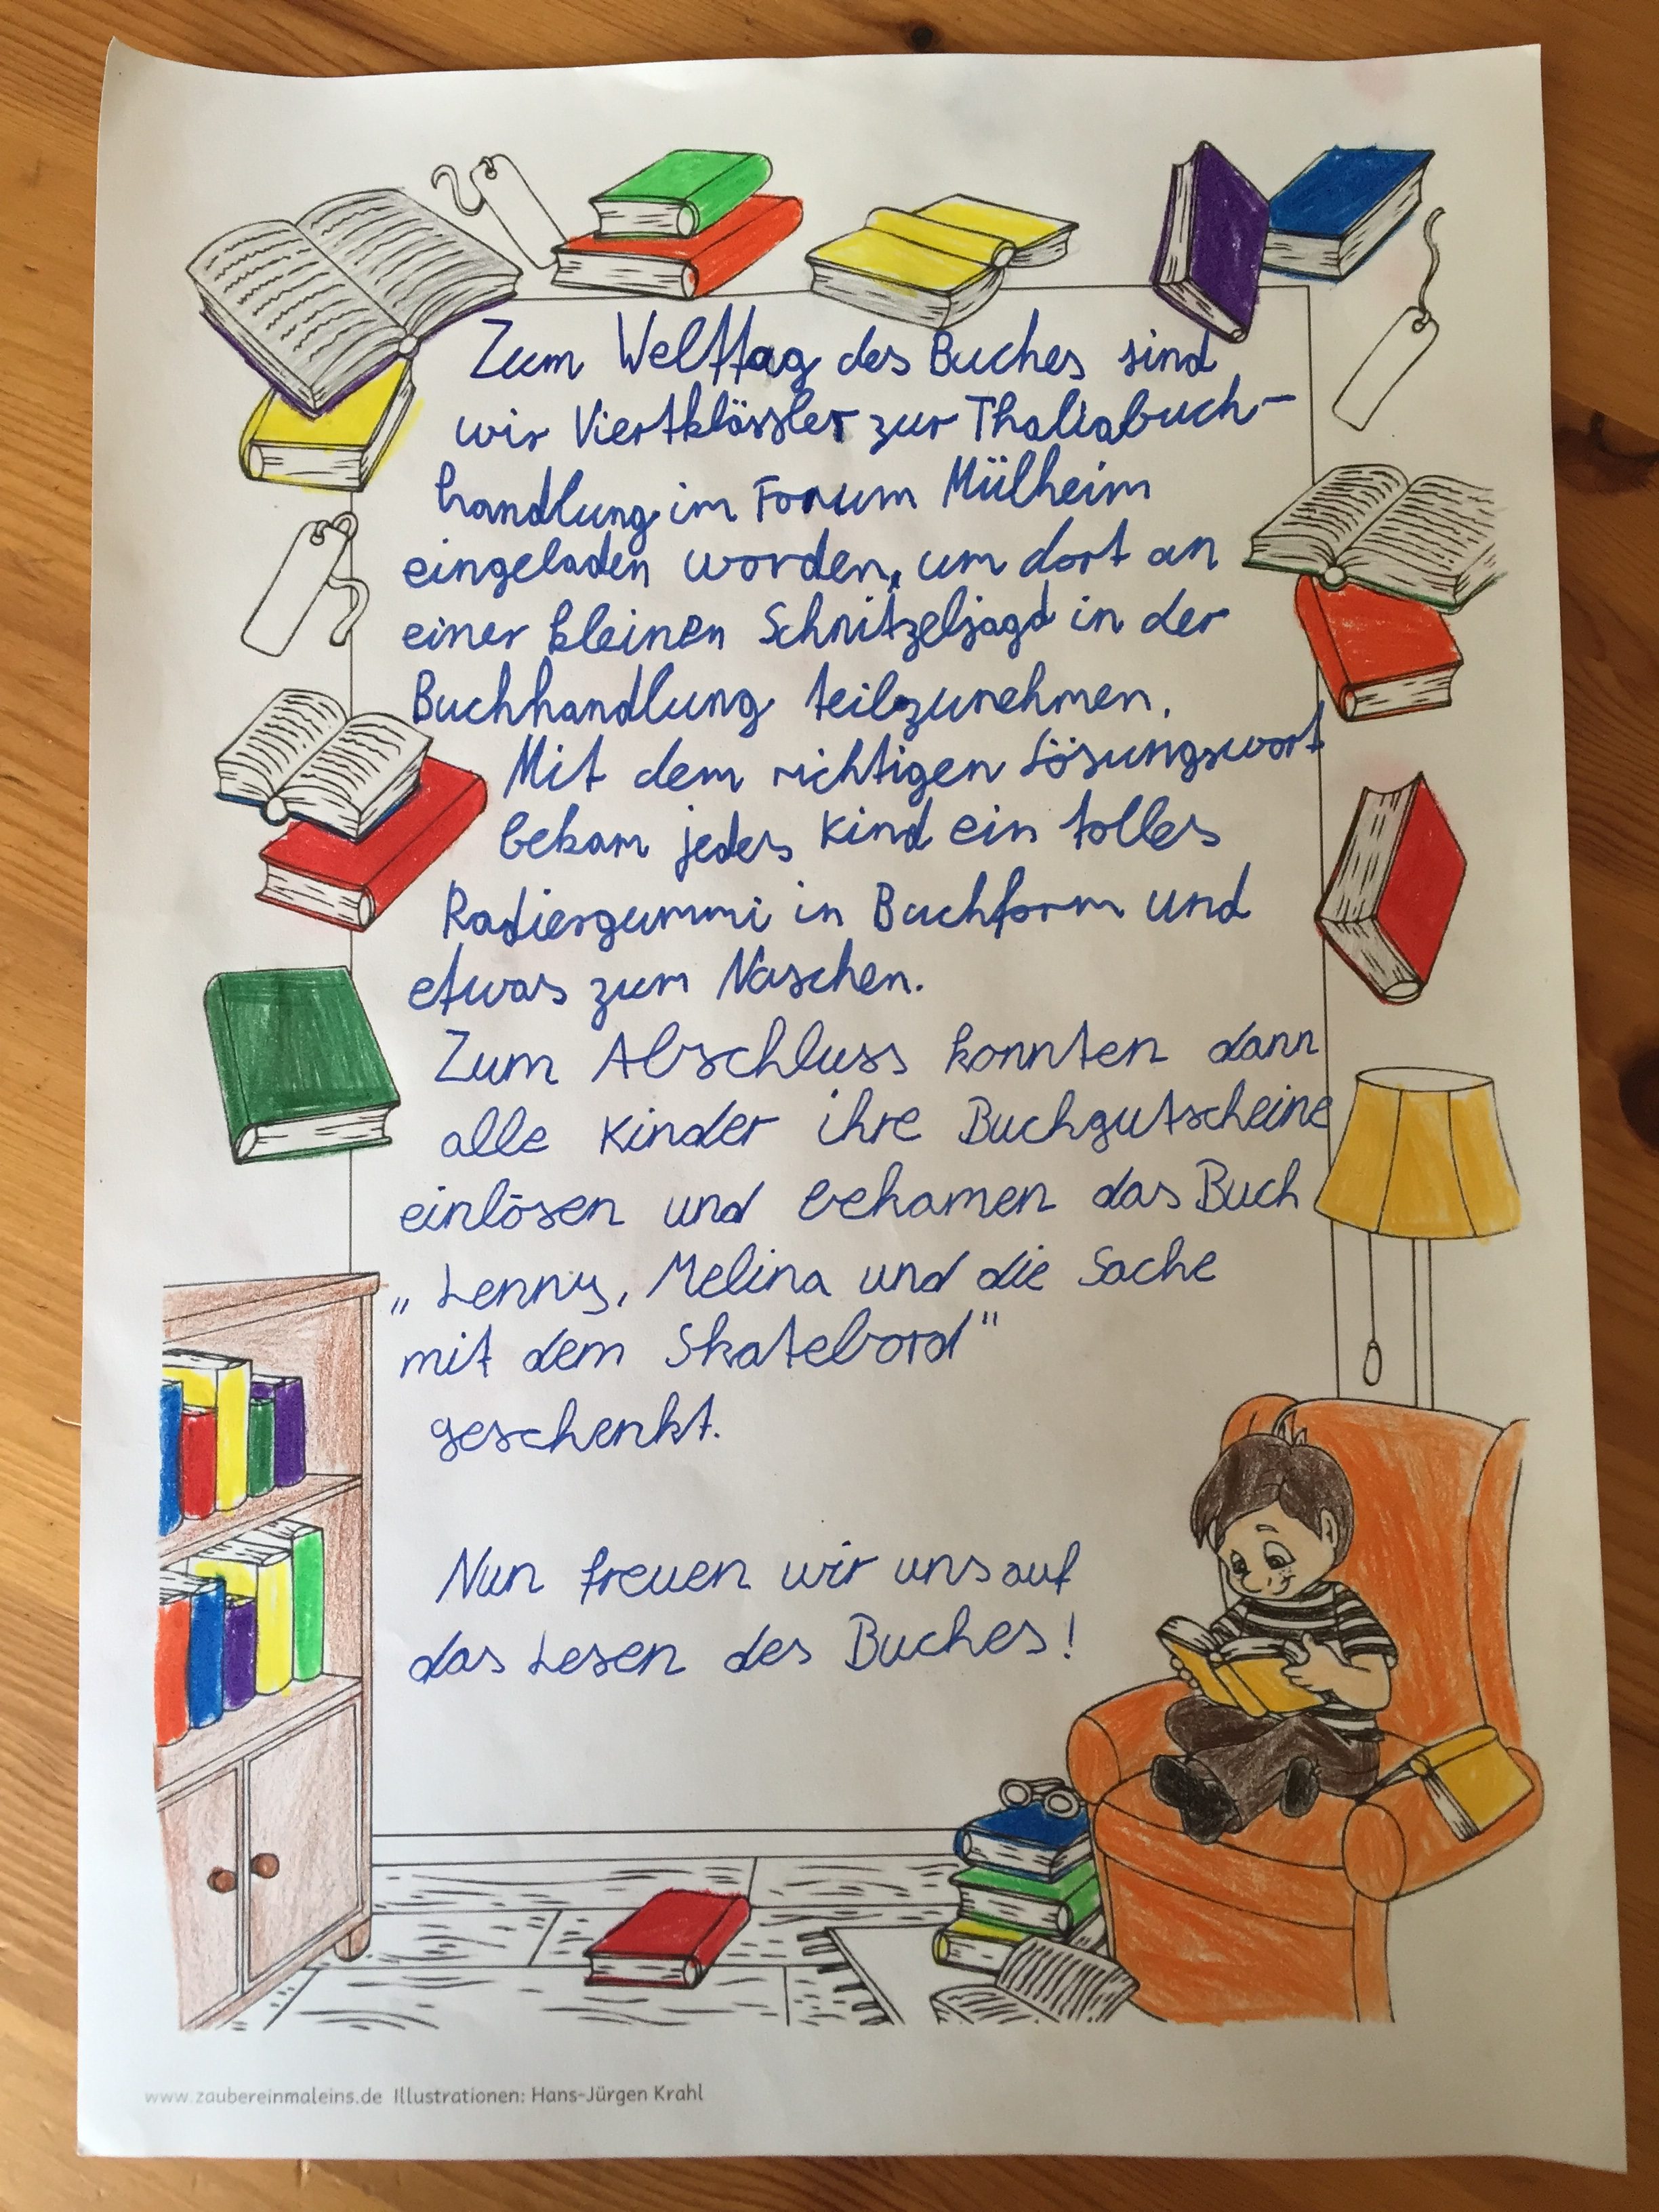 Zum Welttag des Buches sind
wir Viertklässler zur Thaliabuch-
handlung im Forum Mülheim
eingeladen worden, um dort an
einer kleinen Schnitzeljagd in der
Buchhandlung teilzunehmen.
Mit dem richtigen Lösungswort
bekam jedes Kind ein tolles
Radiergummi in Buchform und
etwas zum Naschen.
Zum Abschluss konnten dann
alle Kinder ihre Buchgutscheine
einlösen und bekamen das Buch
„Lenny, Melina und die Sache
mit dem Skatebord"
geschenkt.
Nun freuen wir uns auf
das Lesen des Buches!
www.zaubereinmaleins.de Illustrationen: Hans-Jürgen Krahl